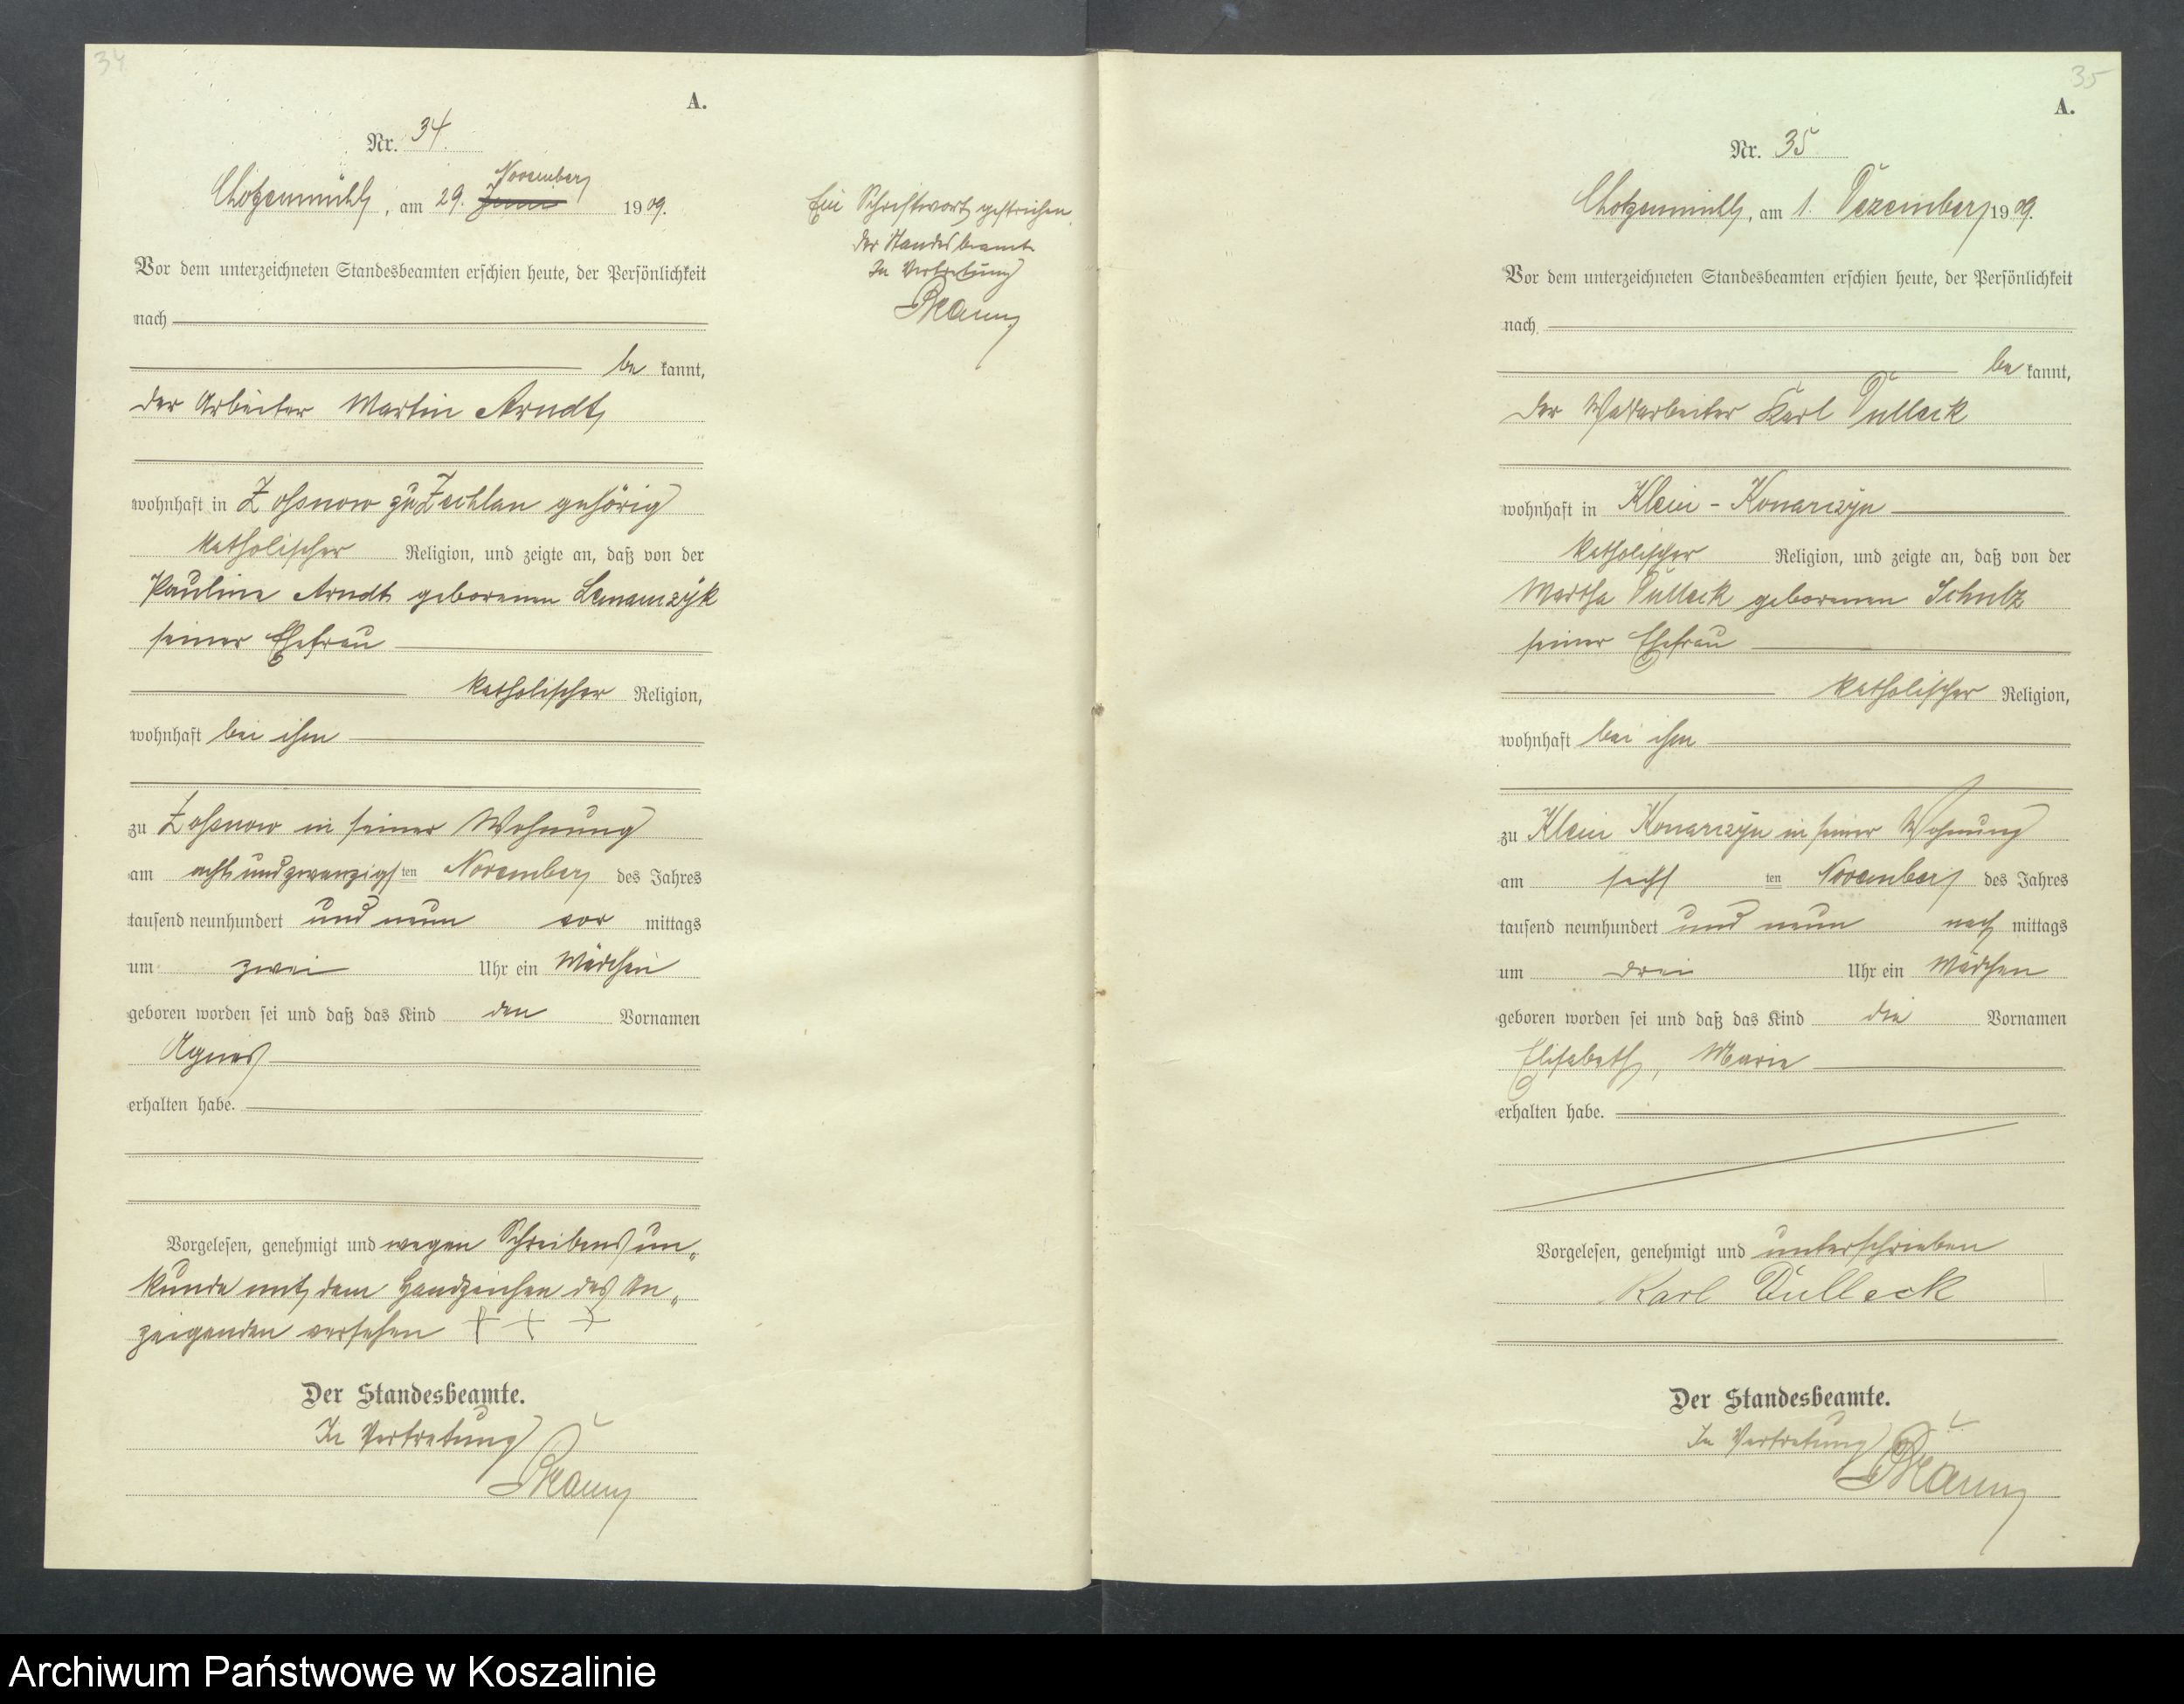 34
A.
Nr. 34.
November
Chotzenmühl, am 29. Juni 1909.
Vor dem unterzeichneten Standesbeamten erschien heute, der Persönlichkeit
nach
be kannt,
der Arbeiter Martin Arndt
wohnhaft in Lossnow zu Zechlau gehörig
katholischer Religion, und zeigte an, daß von der
Pauline Arndt geborenen
seiner Ehefrau
katholischer Religion,
wohnhaft bei ihm
zu Lossnow in seiner Wohnung
am achtundzwanzigsten November des Jahres
tausend neunhundert und neun vor mittags
um zwei Uhr ein Mädchen
geboren worden sei und daß das Kind den Vornamen
Agnes
erhalten habe.
Vorgelesen, genehmigt und wegen Schreibensun„
kunde mit dem Handzeichen des An„
zeigenden versehen + + +
Der Standesbeamte.
In Vertretung
Ein Schriftwort gestrichen.
Der Standesbeamte
In Vertretung
35
A.
Nr. 35
Chotzenmühl, am 1. Dezember 1909.
Vor dem unterzeichneten Standesbeamten erschien heute, der Persönlichkeit
nach
be kannt,
der Waldarbeiter Karl Dulleck
wohnhaft in Klein-Konarczyn
katholischer Religion, und zeigte an, daß von der
Martha Dulleck geborenen Schulz
seiner Ehefrau
katholischer Religion,
wohnhaft bei ihm
zu Klein Konarczyn in seiner Wohnung
am sechsten November des Jahres
tausend neunhundert und neun nach mittags
um drei Uhr ein Mädchen
geboren worden sei und daß das Kind die Vornamen
Elisabeth, Marie
erhalten habe.
Vorgelesen, genehmigt und unterschrieben
Karl Dulleck
Der Standesbeamte.
In Vertretung
Archiwum Państwowe w Koszalinie